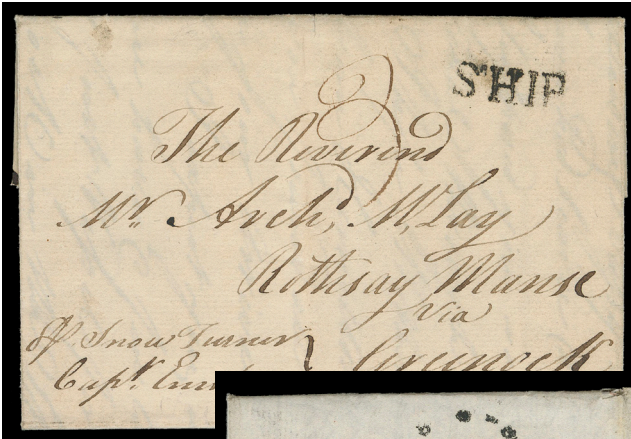 SHIP
The Reverend
Mr. Archd. McLay
Rothsay Manse
Via
Greenock
P Snow Turner
Capt.